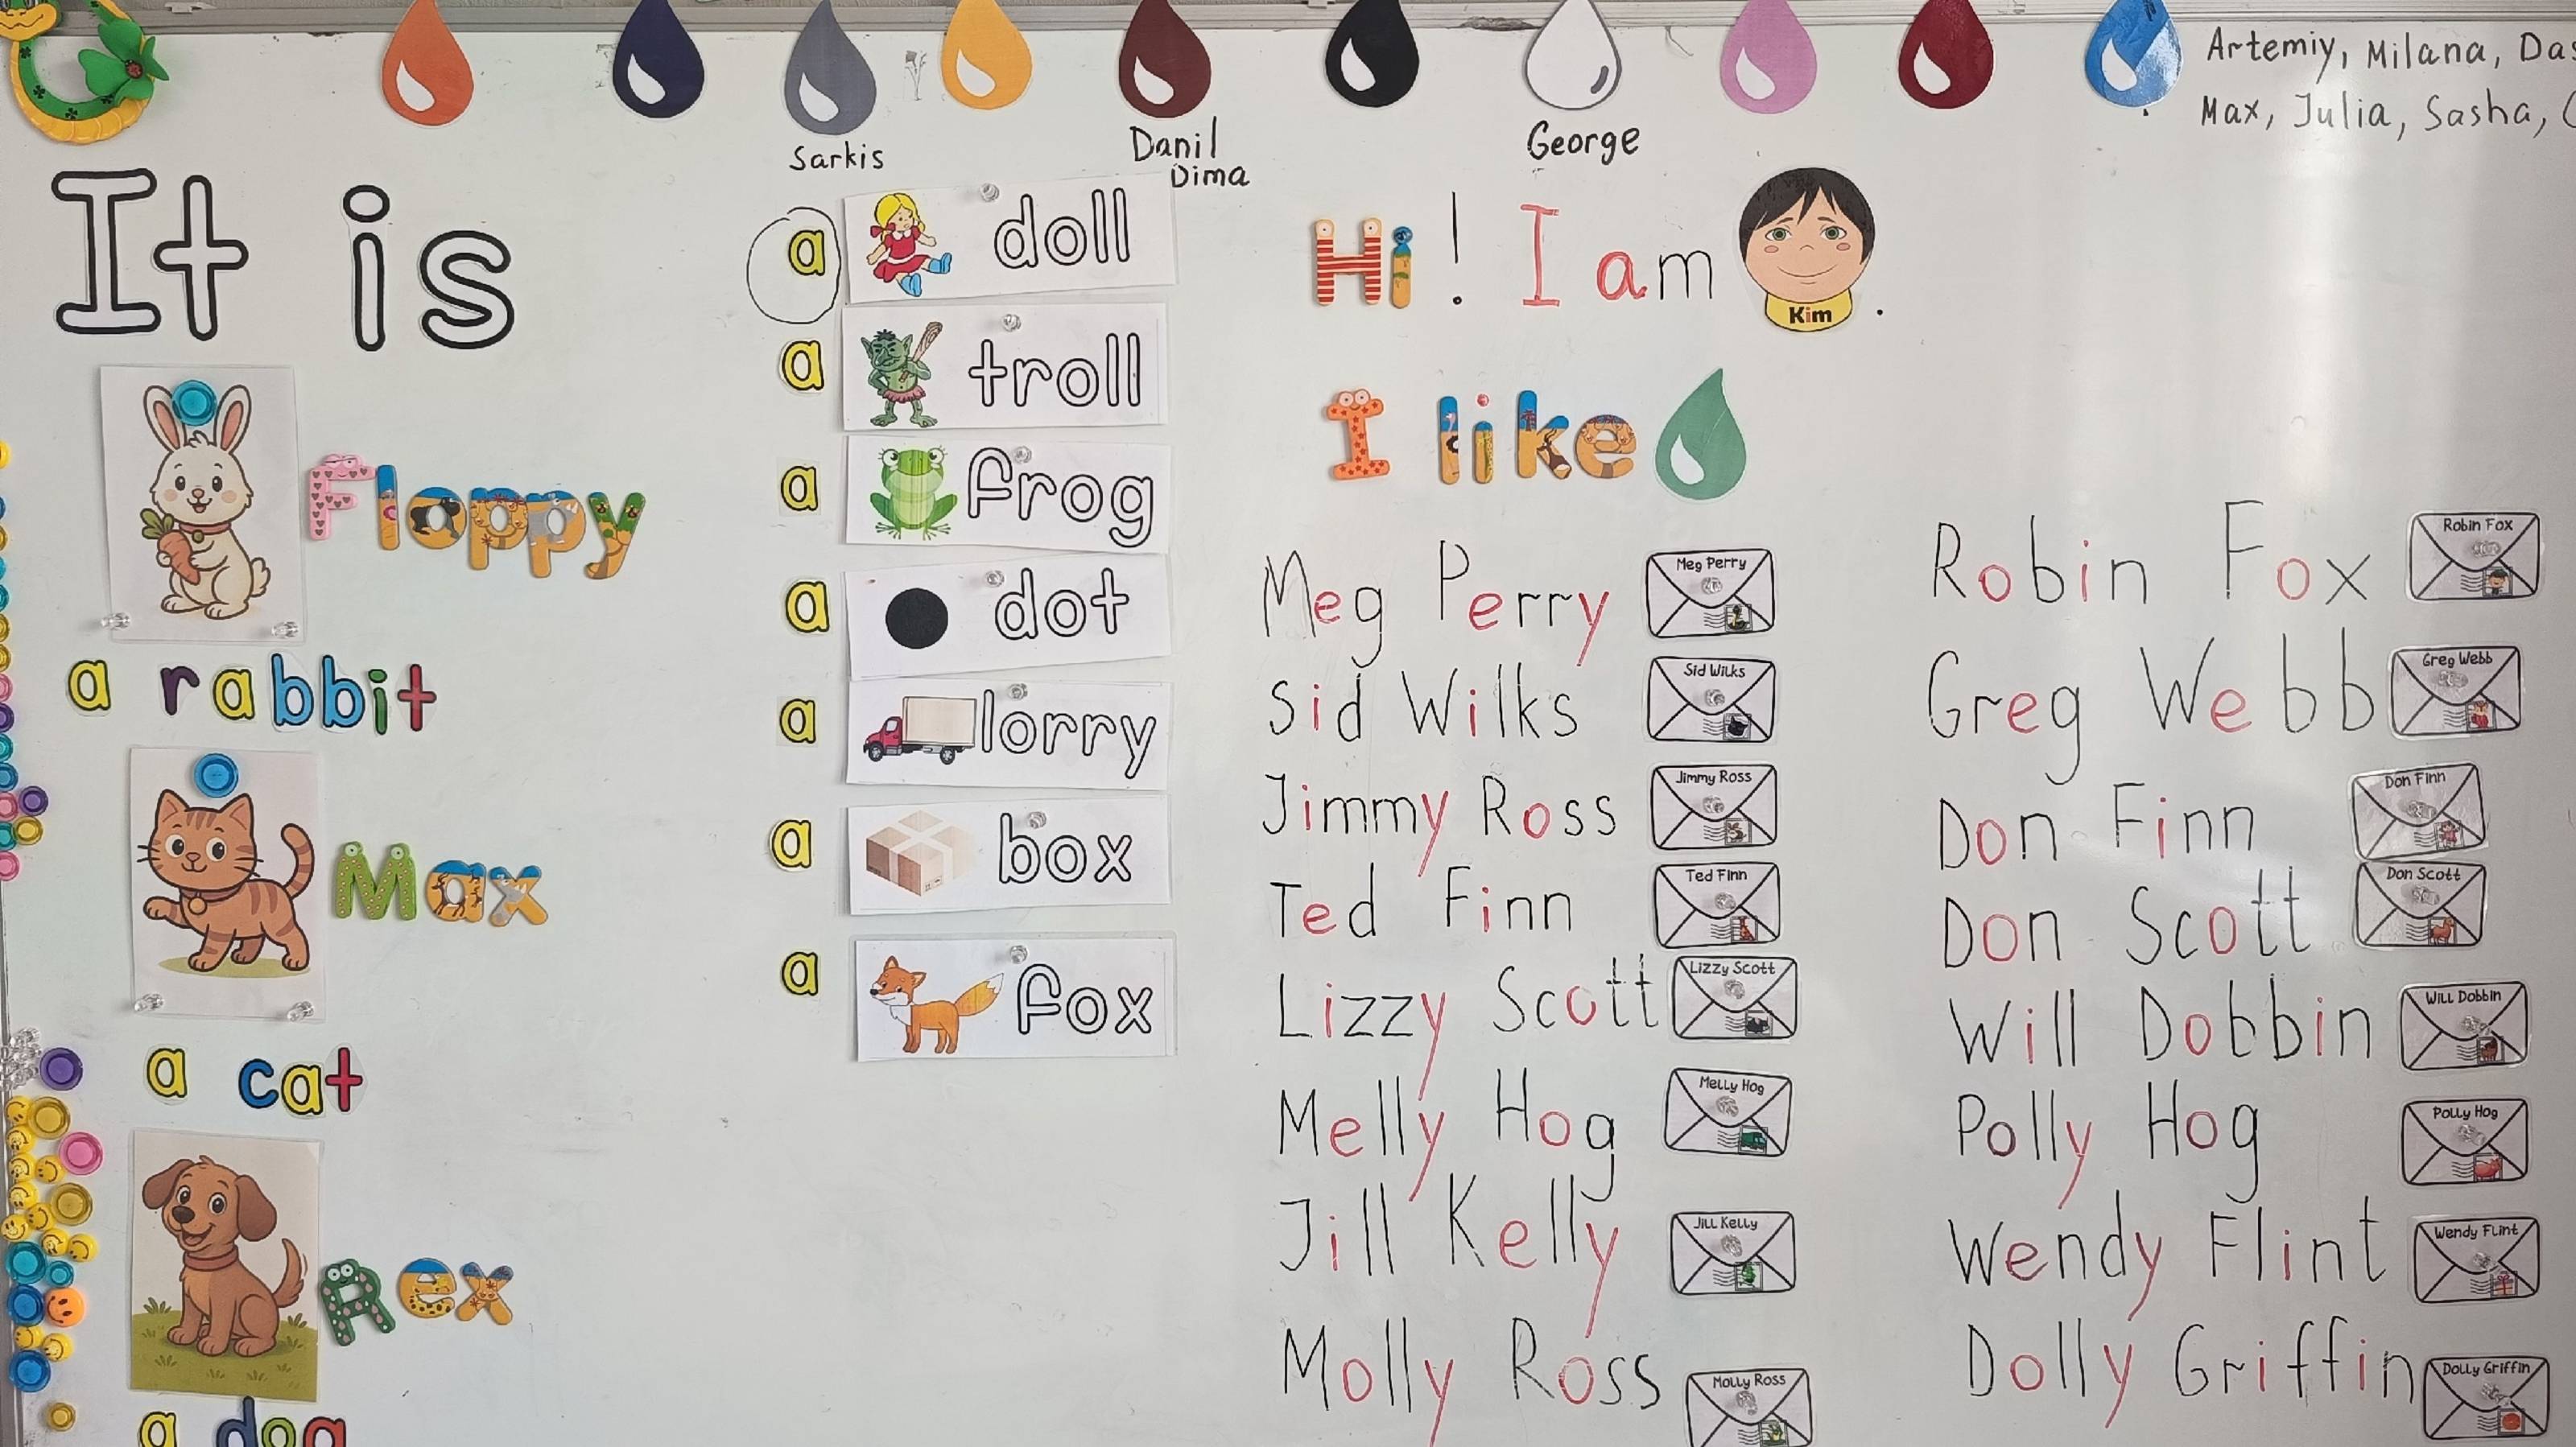 Artemiy, Milana,
Max, Julia, Sasha,
Sarkis
Danil
Dima
George
It is
Floppy
a rabbit
Max
a cat
Rex
a dog
a doll
a troll
a frog
a dot
a lorry
a box
a fox
Hi! I am Kim.
I like
Meg Perry
Meg Perry
Sid Wilks
Sid Wilks
Jimmy Ross
Jimmy Ross
Ted Finn
Ted Finn
Lizzy Scott
Lizzy Scott
Melly Hog
Melly Hog
Jill Kelly
Jill Kelly
Molly Ross
Molly Ross
Robin Fox
Robin Fox
Greg Webb
Greg Webb
Don Finn
Don Finn
Don Scott
Don Scott
Will Dobbin
Will Dobbin
Polly Hog
Polly Hog
Wendy Flint
Wendy Flint
Dolly Griffin
Dolly Griffin